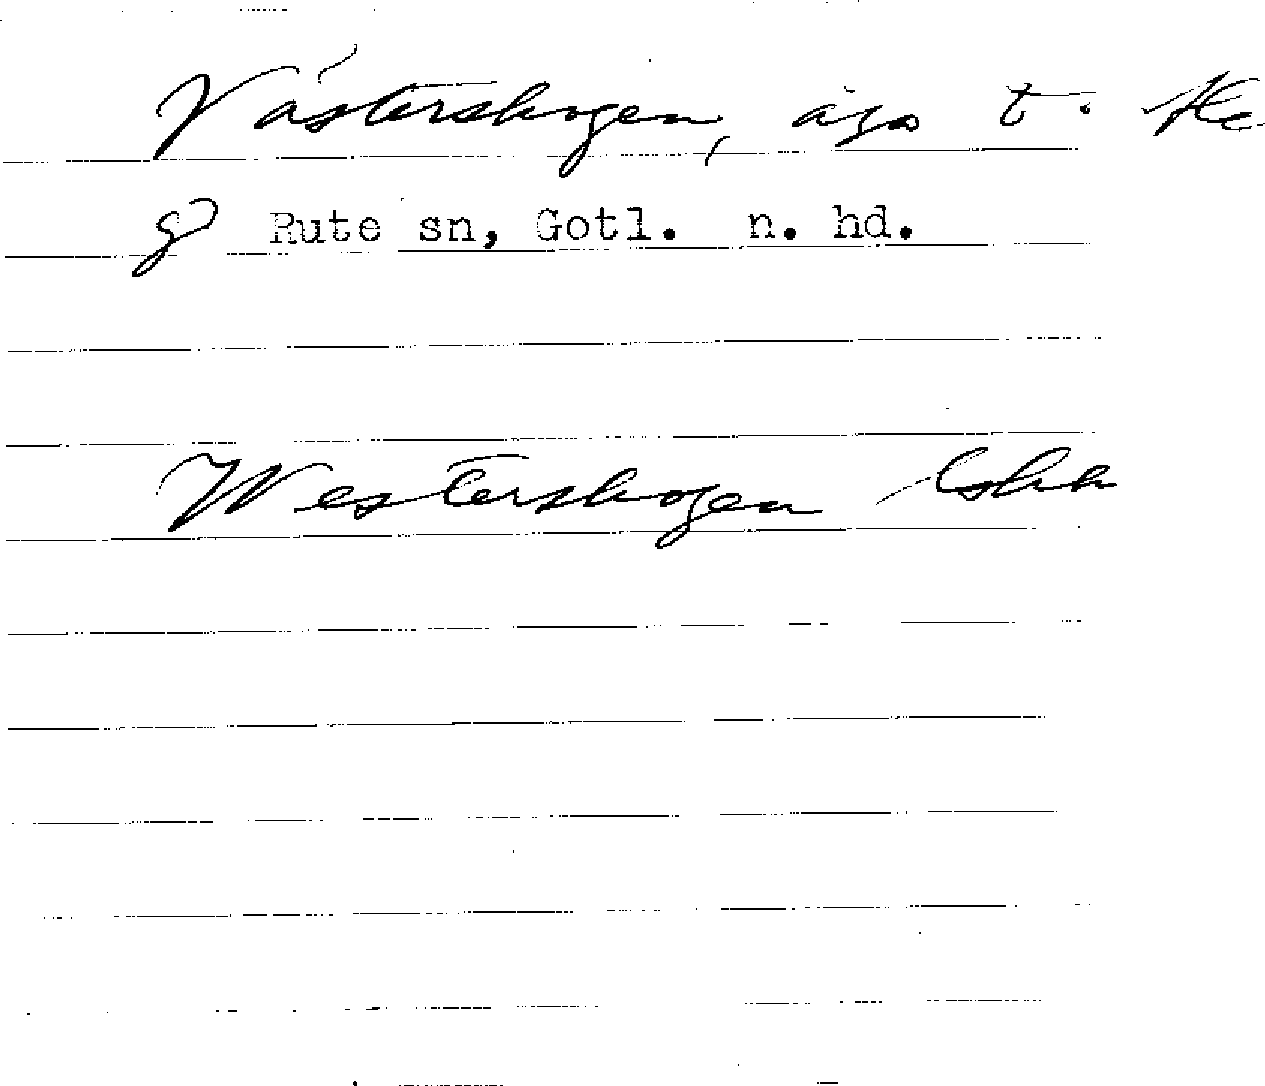 Västerskogen, äga t.
g) Rute sn, Gotl. n. hd.
Westerskogen